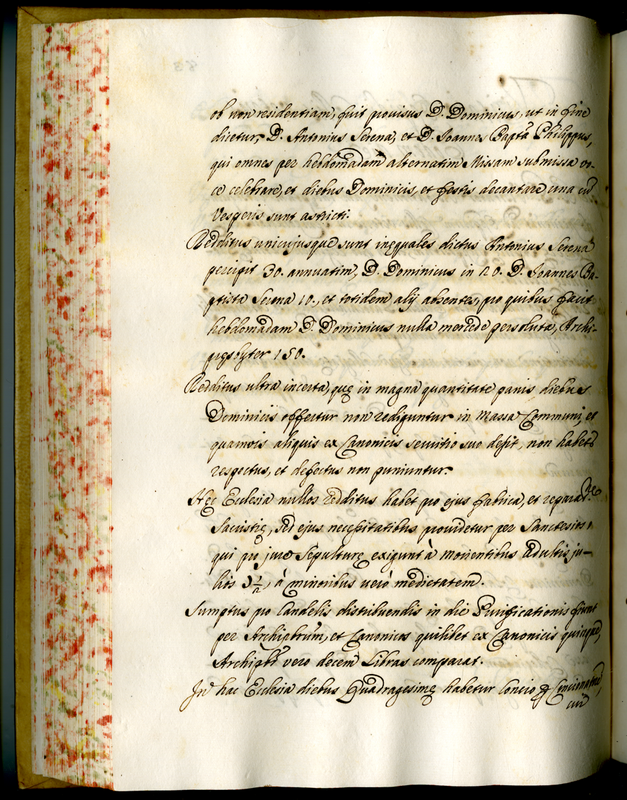 ob non residentiam, fuit provisus D. Dominicus, ut in fine
dicetur, D. Antonius Serena, et D. Joannes Bapta Philippus,
qui omnes per hebdomadam alternatim Missam submissa vo-
ce celebrare, et diebus Dominicis, et festis decantare una cum
Vesperis sunt astricti.
Redditus uniuscujusque sunt inęquales dictus Antonius Serena
percipit 30. annuatim, D. Dominicus in 20. D. Joannes Ba-
ptista Serena 10., et totidem alij absentes, pro quibus facit
hebdomadam D. Dominicus nulla mercede persoluta, Archi-
pręsbyter 150.
Redditus ultra incerta, quę in magna quantitate panis diebus
Dominicis offertur non rediguntur in Massa Communi, et
quamvis aliquis ex Canonicis servitio suo desit, non habetur
respectus, et defectus non puniuntur.
Hęc Ecclesia nullos redditus habet pro ejus fabrica, et reparat.ne
Sacristię, sed ejus necessitatibus providetur per
qui pro jure Sepulturę exigunt à morientibus adultis ju-
lios à minoribus verò medietatem.
Sumptus pro Candelis distribuendis in die Purificationis fiunt
per Archiptrum, et Canonicos quilibet ex Canonicis quinque,
Archiptr vero decem Libras comparat.
In hac Ecclesia diebus Quadragesimę habetur Concio
cui